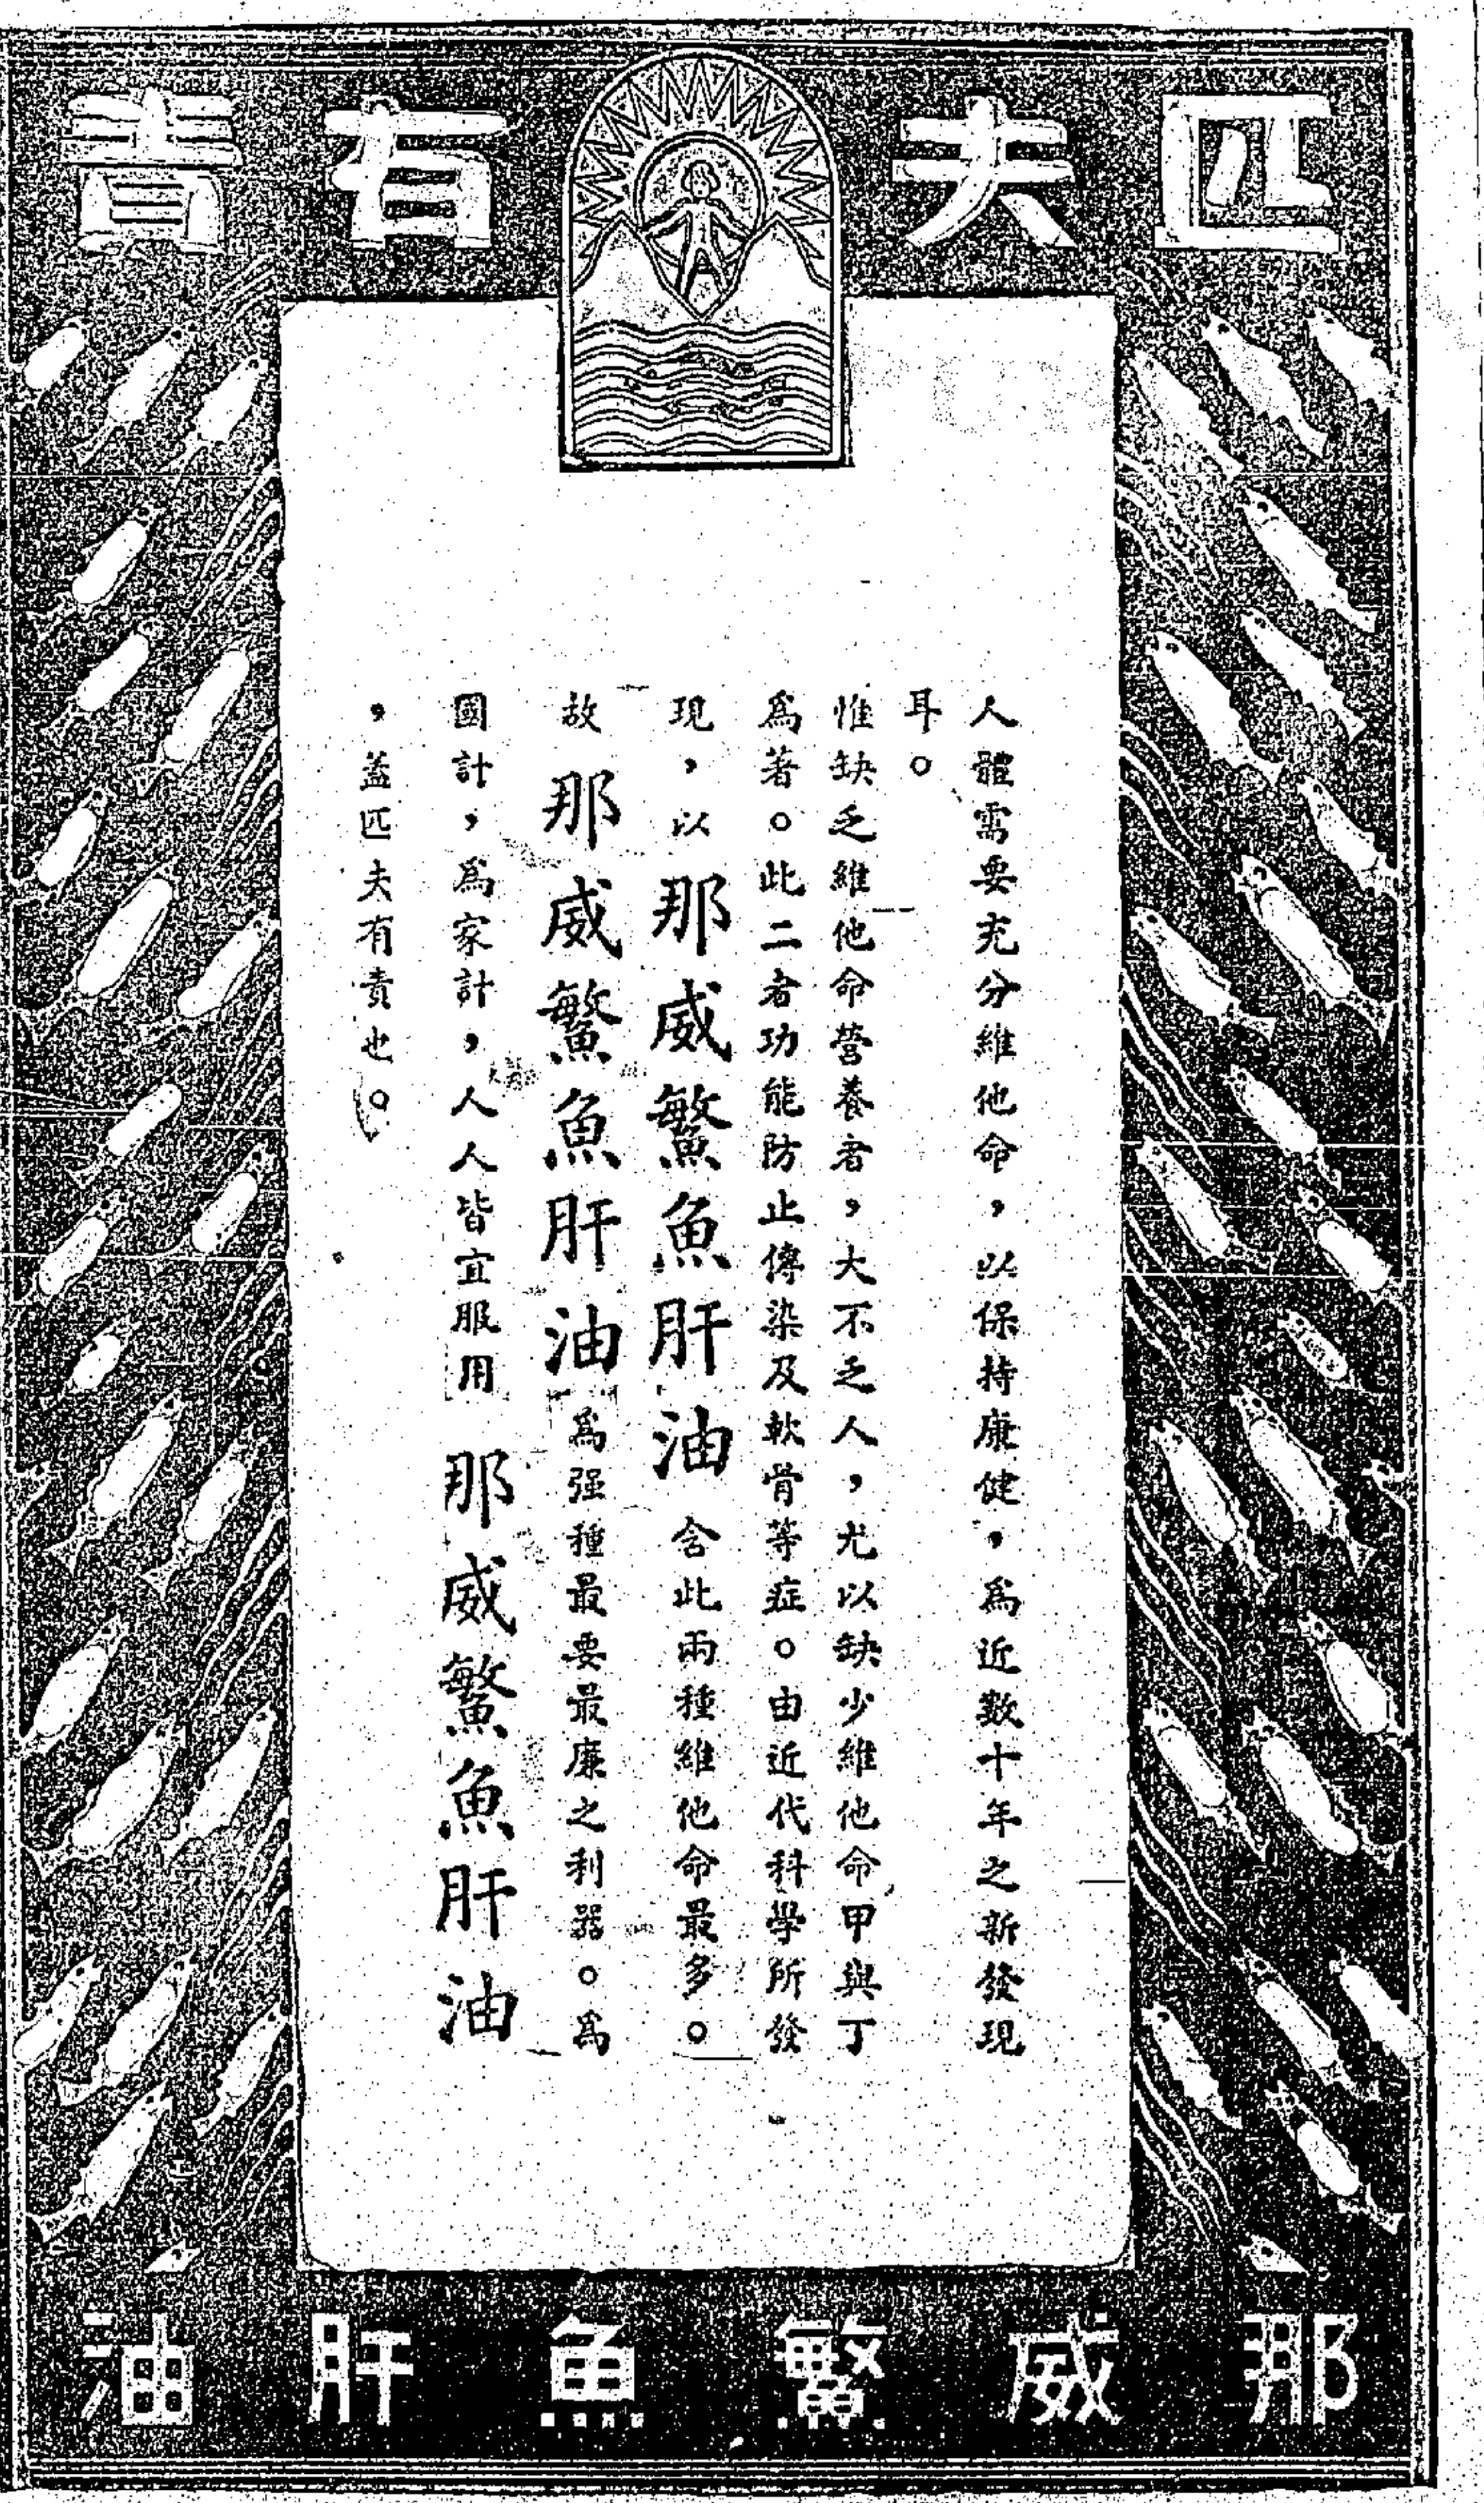 匹夫有責
人體需要充分維他命，以保持康健，為近數十年之新發現
耳。
惟缺乏維他命營養者，大不乏人，尤以缺少維他命甲與丁
為著。此二者功能防止傳染及軟骨等症。由近代科學所發
現，以那威鰵魚肝油含此兩種維他命最多。
故那威鰵魚肝油為强種最要最廉之利器。為
國計，為家計，人人皆宜服用那威鰵魚肝油
，蓋匹夫有責也。
那威鰵魚肝油